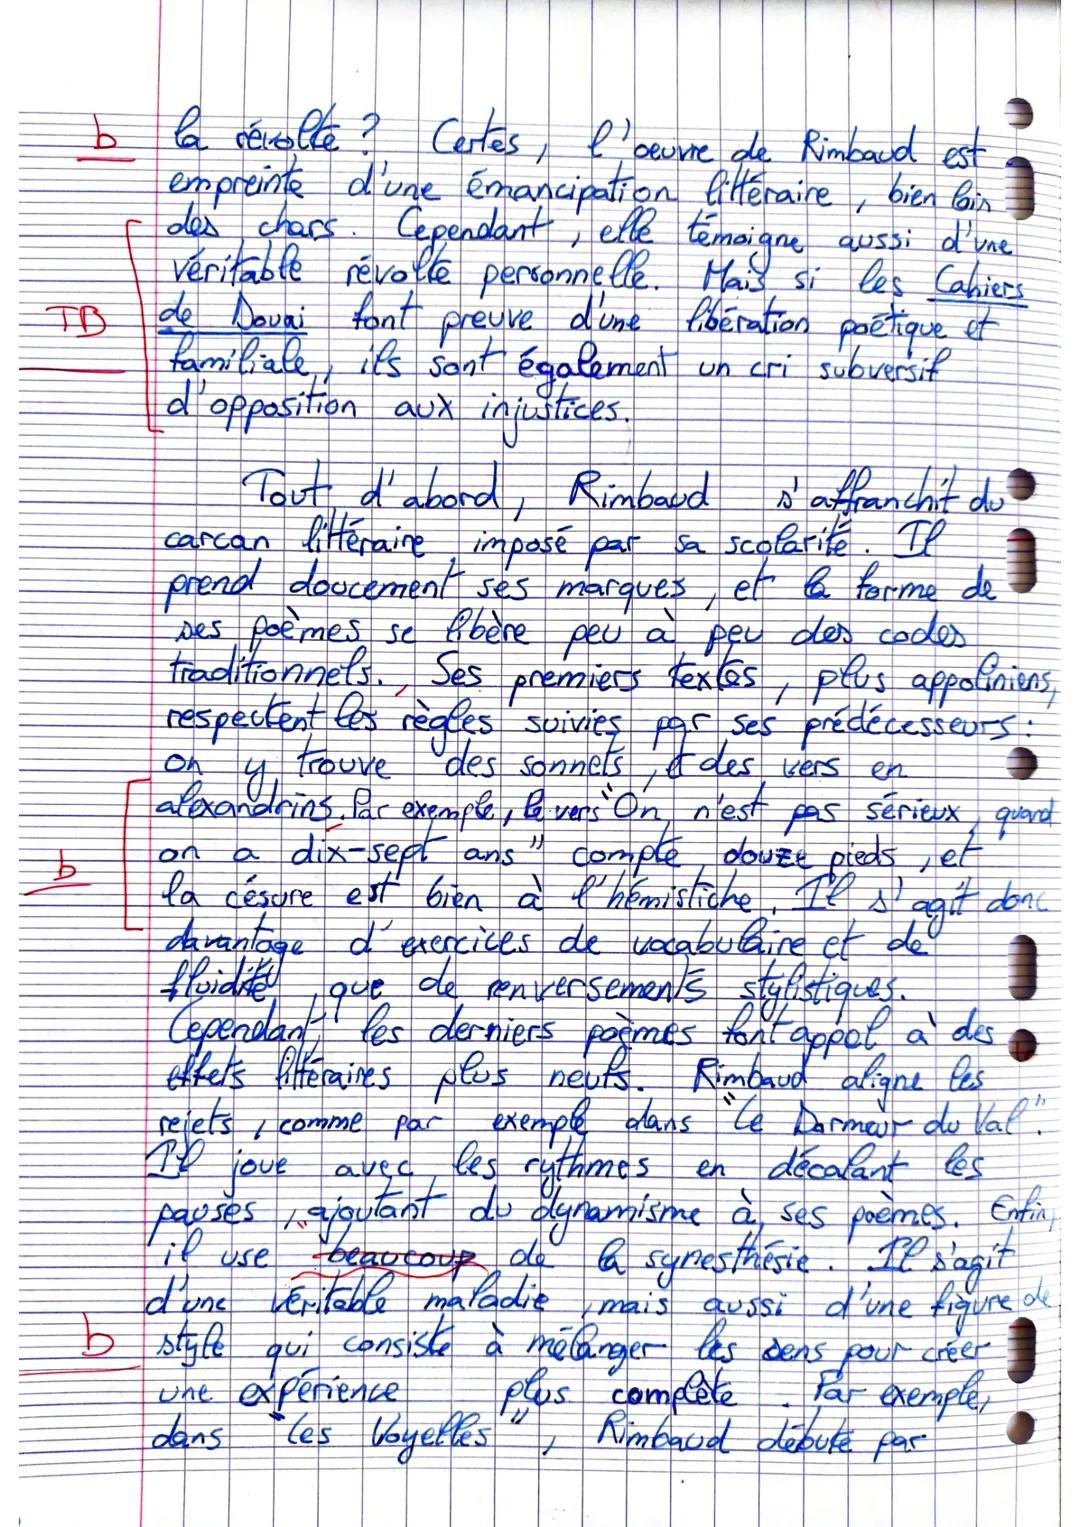 b la révolte ? Certes, l'oeuvre de Rimbaud est
empreinte d'une émancipation littéraire, bien loin
des chars. Cependant, elle témoigne aussi d'une
véritable révolte personnelle. Mais si les Cahiers
TB de Douai font preuve d'une libération poétique et
familiale, ils sont également un cri subversif
d'opposition aux injustices.
Tout d'abord, Rimbaud s'affranchit du
carcan littéraire imposé par sa scolarité. Il
prend doucement ses marques, et la forme de
ses poèmes se libère peu à peu des codes
traditionnels. Ses premiers textes, plus appoliniens,
respectent les règles suivies par ses prédécesseurs :
on y trouve des sonnets, et des vers en
alexandrins. Par exemple, le vers "On n'est pas sérieux, quand
b on a dix-sept ans" compte douze pieds, et
la césure est bien à l'hémistiche. Il s'agit donc
davantage d'exercices de vocabulaire et de
fluidité, que de renversements stylistiques.
Cependant les derniers poèmes font appel à des
effets littéraires plus neufs. Rimbaud aligne les
rejets, comme par exemple dans "Le Dormeur du Val".
Il joue avec les rythmes en décalant les
pauses, ajoutant du dynamisme à ses poèmes. Enfin,
il use beaucoup de la synesthésie. Il s'agit
d'une véritable maladie, mais aussi d'une figure de
b style qui consiste à mélanger les sens pour créer
une expérience plus complète. Par exemple,
dans "Les Voyelles", Rimbaud débute par